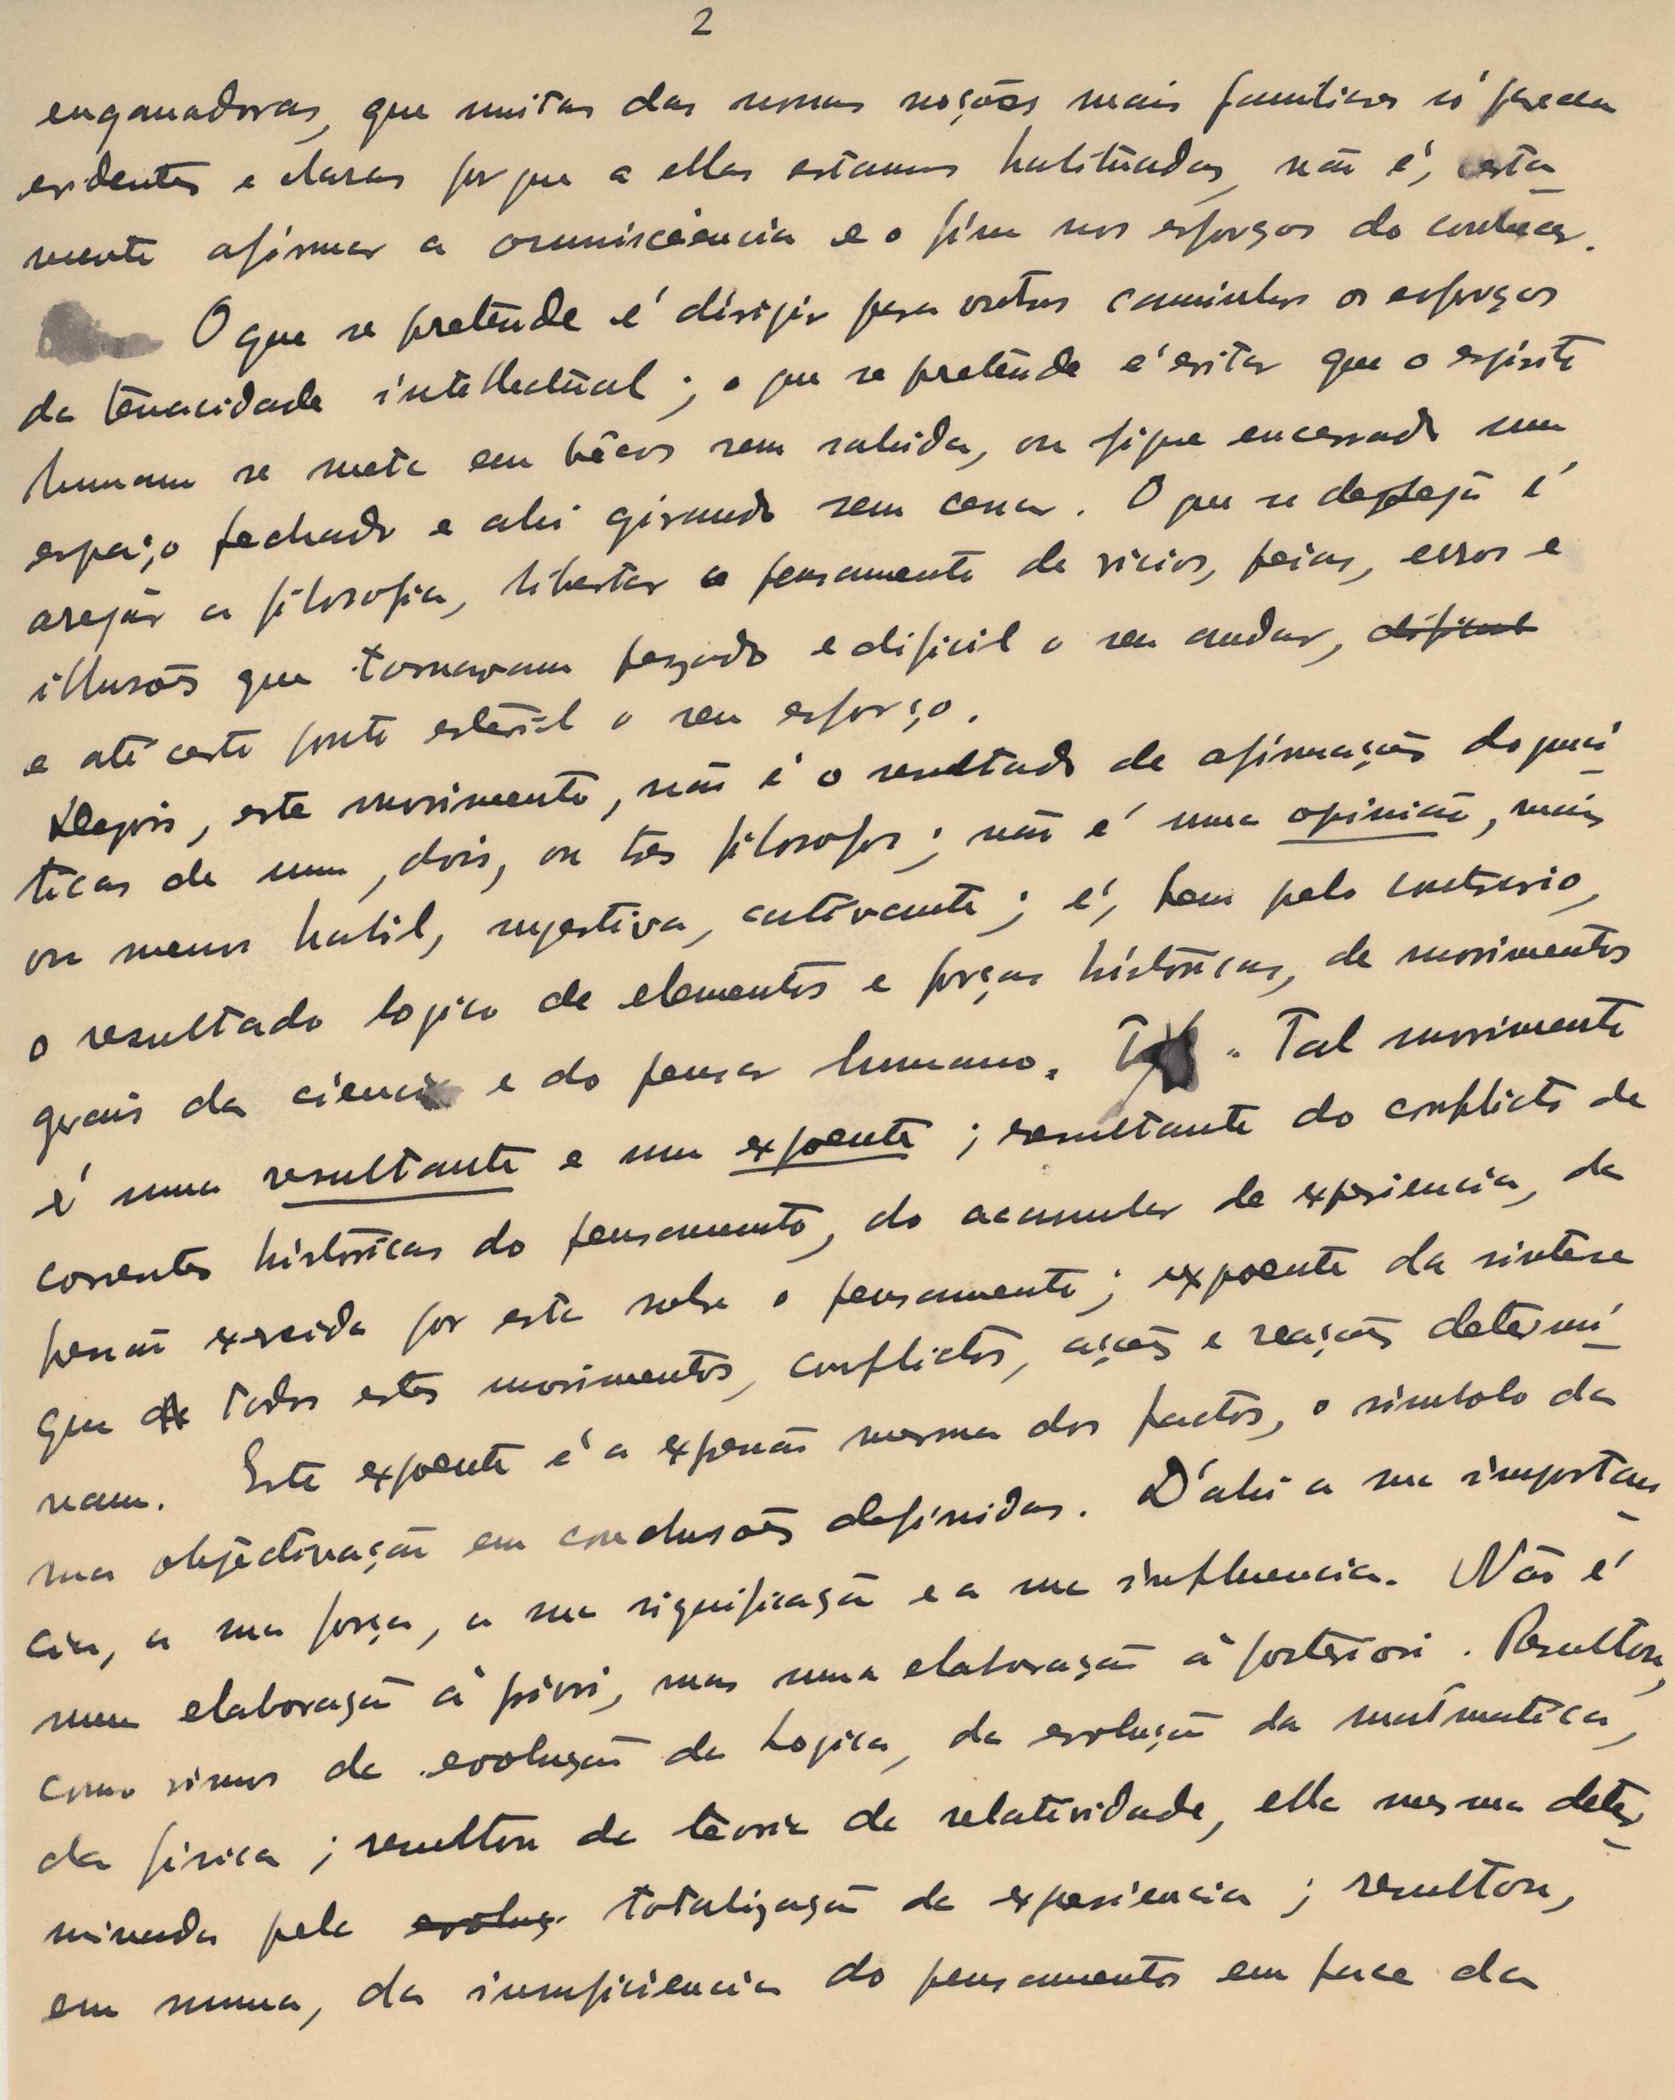 2
enganadoras, que muitas das nossas noções mais familiares só parecem
evidentes e claras porque a ellas estamos habituados, não é, certa_
mente afirmar a omnisciência e o fim nos esforços do conhecer.
O que se pretende é dirigir para outros caminhos os esforços
da tenacidade intellectual; o que se pretende é evitar que o espirito
humano se meta em bêcos sem sahida, ou fique encerrado num
espaço fechado e ahi girando sem cessar. O que se deseja é
arejar a filosofia, libertar o pensamento de vicios, peias, erros e
illusões que tornavam pezado e dificil o seu andar, dificul
e até certo ponto esteril o seu esforço.
Depois, este movimento, não é o resultado de afirmações dogmá_
ticas de um, dois, ou tres filosofos; não é uma opinião, mais
ou menos habil, sugestiva, cativante; é, bem pelo contrario,
o resultado logico de elementos e forças históricas, de movimentos
gerais da ciencia e do pensar humano. Tal movimento
é uma resultante e um expoente; resultante do conflicto de
correntes históricas do pensamento, do acumular de experiencia, da
pressão exercida por esta sobre o pensamento; expoente da sintese
que todos estes movimentos, conflictos, acções e reações determi_
nam. Este expoente é a expressão mesma dos factos, o simbolo da
sua objectivação em conclusões definidas. D'ahi a sua importan_
cia, a sua força, a sua significação e a sua influencia. Não é
uma elaboração á priori, mas uma elaboração á posteriori. Resultou,
como vimos da evolução da Logica, da evolução da matmatica,
da fisica; resultou da teoria da relatividade, ella mesma deter_
minada pela evoluç. totalização da experiencia; resultou,
em summa, da insuficiencia do pensamento em face da